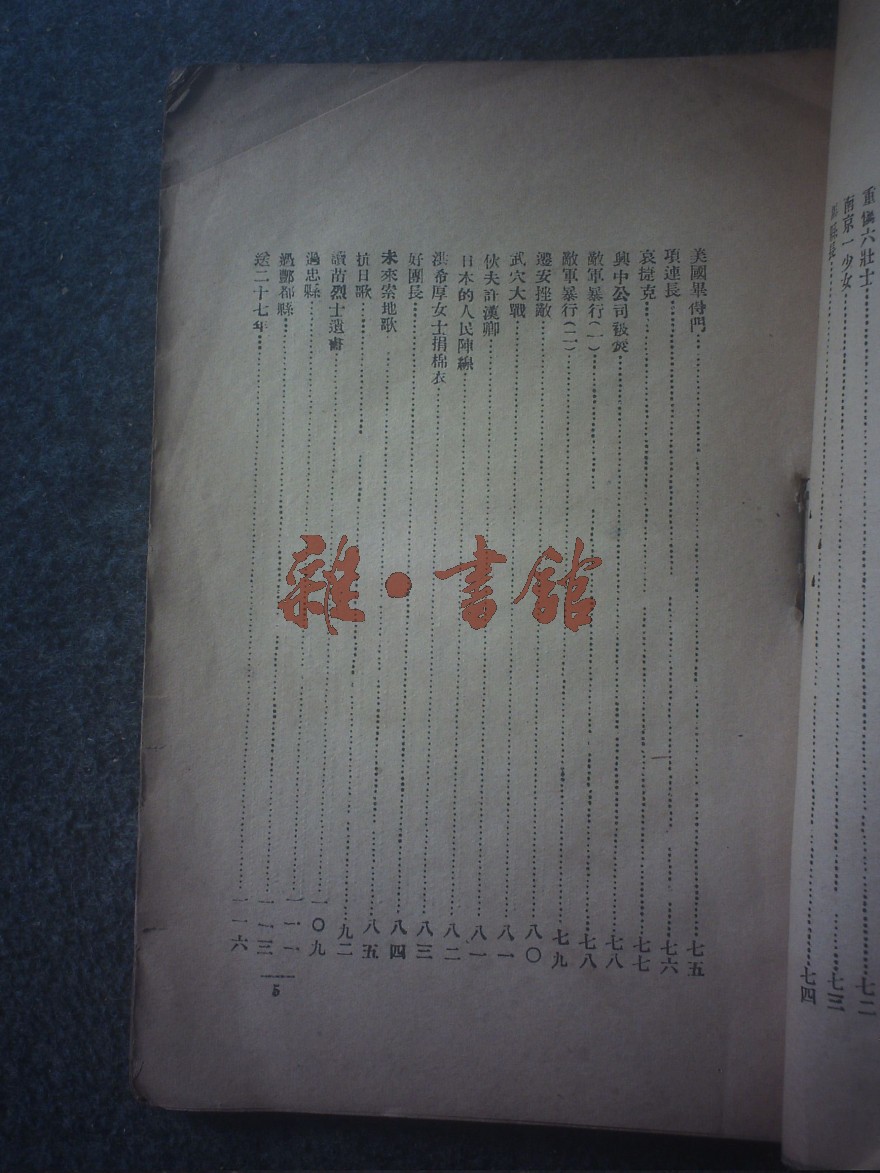 重慶六壯士……七二
南京一少女……七三
縣長……七四
美國畢得門……七五
項連長……七六
哀捷克……七七
興中公司被焚……七八
敵軍暴行(一)……七八
敵軍暴行(二)……七九
遷安挫敵……八〇
武穴大戰……八一
伙夫許漢卿……八一
日本的人民陣線……八二
洪希厚女士捐棉衣……八三
好團長……八四
未來索地歌……八五
抗日歌……九二
讀苗烈士遺書……一〇九
過忠縣……一一一
過酆都縣……一一三
送二十七年……一一六
5
雜·書館